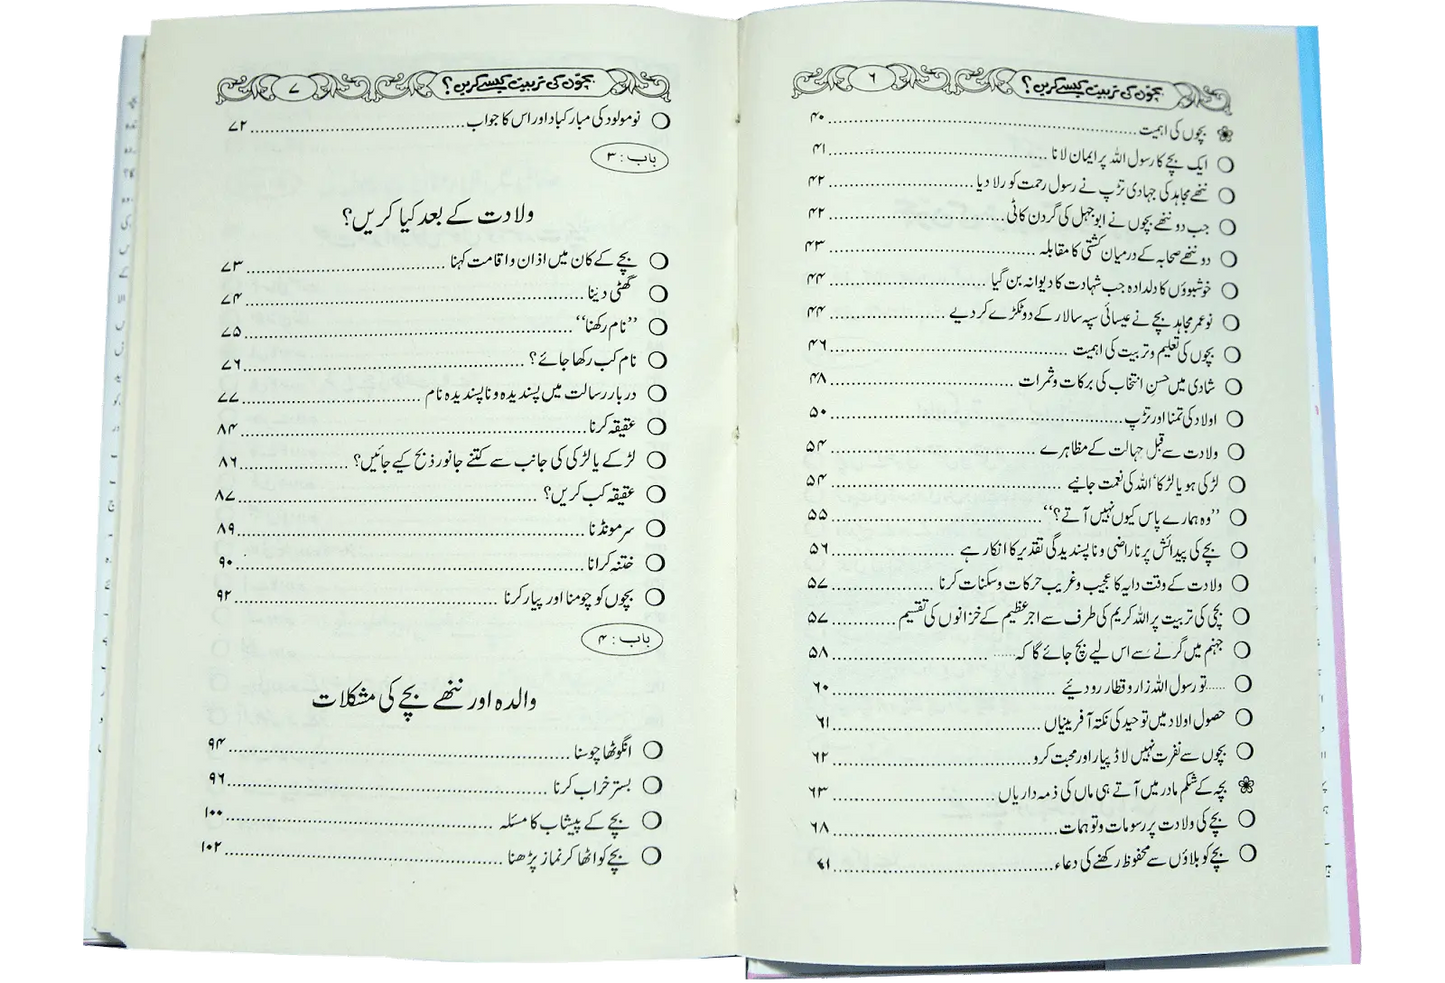 بچوں کی تربیت کیسے کریں؟ ۶
بچوں کی اہمیت ۴۰
ایک بچے کا رسول اللہ پر ایمان لانا ۴۱
ننھے مجاہد کی جہادی تڑپ نے رسول رحمت کو رلا دیا ۴۲
جب دو ننھے بچوں نے ابوجہل کی گردن کاٹی ۴۲
دو ننھے صحابہ کے درمیان کشتی کا مقابلہ ۴۳
خوشبوؤں کا دلدادہ جب شہادت کا دیوانہ بن گیا ۴۴
نوعمر مجاہد بچے نے عیسائی سپہ سالار کے دو ٹکڑے کر دیے ۴۴
بچوں کی تعلیم و تربیت کی اہمیت ۴۶
شادی میں حسنِ انتخاب کی برکات و ثمرات ۴۸
اولاد کی تمنا اور تڑپ ۵۰
ولادت سے قبل جہالت کے مظاہرے ۵۴
لڑکی ہو یا لڑکا‘ اللہ کی نعمت جانیے ۵۴
’’وہ ہمارے پاس کیوں نہیں آتے؟‘‘ ۵۵
بچے کی پیدائش پر ناراضی و ناپسندیدگی تقدیر کا انکار ہے ۵۶
ولادت کے وقت دایہ کا عجیب و غریب حرکات و سکنات کرنا ۵۷
بچی کی تربیت پر اللہ کریم کی طرف سے اجر عظیم کے خزانوں کی تقسیم ۵۷
جہنم میں گرنے سے اس لیے بچ جائے گا کہ...... ۵۸
......تو رسول اللہ زار و قطار رو دیئے ۶۰
حصول اولاد میں توحید کی نکتہ آفرینیاں ۶۱
بچوں سے نفرت نہیں لاڈ پیار اور محبت کرو ۶۲
بچہ کے شکم مادر میں آتے ہی ماں کی ذمہ داریاں ۶۳
بچے کی ولادت پر رسومات و توہمات ۶۸
بچے کو بلاؤں سے محفوظ رکھنے کی دعاء ۷۱
بچوں کی تربیت کیسے کریں؟ ۷
نومولود کی مبارکباد اور اس کا جواب ۷۲
باب : ۳
ولادت کے بعد کیا کریں؟
بچے کے کان میں اذان و اقامت کہنا ۷۳
گھٹی دینا ۷۴
’’نام رکھنا‘‘ ۷۵
نام کب رکھا جائے؟ ۷۶
دربار رسالت میں پسندیدہ و ناپسندیدہ نام ۷۷
عقیقہ کرنا ۸۴
لڑکے یا لڑکی کی جانب سے کتنے جانور ذبح کیے جائیں؟ ۸۶
عقیقہ کب کریں؟ ۸۷
سر مونڈنا ۸۹
ختنہ کرانا ۹۰
بچوں کو چومنا اور پیار کرنا ۹۲
باب : ۴
والدہ اور ننھے بچے کی مشکلات
انگوٹھا چوسنا ۹۴
بستر خراب کرنا ۹۶
بچے کے پیشاب کا مسئلہ ۱۰۰
بچے کو اٹھا کر نماز پڑھنا ۱۰۲